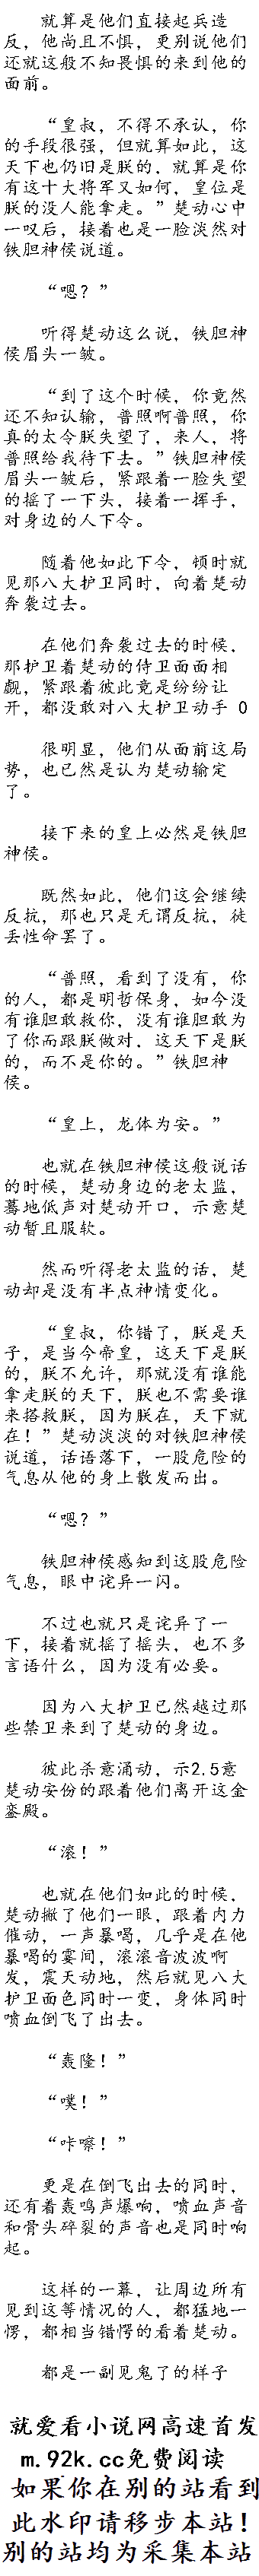 就算是他们直接起兵造
反，他尚且不惧，更别说他们
还就这般不知畏惧的来到他的
面前。
“皇叔，不得不承认，你
的手段很强，但就算如此，这
天下也仍旧是朕的．就算是你
有这十大将军又如何，皇位是
朕的没人能拿走。”楚动心中
一叹后，接着也是一脸淡然对
铁胆神侯说道。
“嗯？”
听得楚动这么说，铁胆神
侯眉头一皱。
“到了这个时候，你竟然
还不知认输，普照啊普照，你
真的太令朕失望了，来人，将
普照给我待下去。”铁胆神侯
眉头一皱后，紧跟着一脸失望
的摇了一下头，接着一挥手，
对身边的人下令。
随着他如此下令，顿时就
见那八大护卫同时，向着楚动
奔袭过去。
在他们奔袭过去的时候．
那护卫着楚动的侍卫面面相
觑，紧跟着彼此竟是纷纷让
开，都没敢对八大护卫动手 0
很明显，他们从面前这局
势，也已然是认为楚动输定
了。
接下来的皇上必然是铁胆
神侯。
既然如此，他们这会继续
反抗，那也只是无谓反抗，徒
丢性命罢了。
“普照，看到了没有，你
的人，都是明哲保身，如今没
有谁胆敢救你，没有谁胆敢为
了你而跟朕做对．这天下是朕
的，而不是你的。”铁胆神
侯。
“皇上，龙体为安。”
也就在铁胆神侯这般说话
的时候，楚动身边的老太监，
蓦地低声对楚动开口，示意楚
动暂且服软。
然而听得老太监的话，楚
动却是没有半点神情变化。
“皇叔，你错了，朕是天
子，是当今帝皇，这天下是朕
的，朕不允许，那就没有谁能
拿走朕的天下，朕也不需要谁
来搭救朕，因为朕在，天下就
在！”楚动淡淡的对铁胆神侯
说道，话语落下，一股危险的
气息从他的身上散发而出。
“嗯？”
铁胆神侯感知到这股危险
气息，眼中诧异一闪。
不过也就只是诧异了一
下，接着就摇了摇头，也不多
言语什么，因为没有必要。
因为八大护卫已然越过那
些禁卫来到了楚动的身边。
彼此杀意涌动，示2.5意
楚动安份的跟着他们离开这金
銮殿。
“滚！”
也就在他们如此的时候．
楚动撇了他们一眼，跟着内力
催动，一声暴喝，几乎是在他
暴喝的霎间，滚滚音波波啊
发，震天动地，然后就见八大
护卫面色同时一变，身体同时
喷血倒飞了出去。
“轰隆！”
“噗！”
“咔嚓！”
更是在倒飞出去的同时，
还有着轰鸣声爆响，喷血声音
和骨头碎裂的声音也是同时响
起。
这样的一幕，让周边所有
见到这等情况的人，都猛地一
愣，都相当错愕的看着楚动。
都是一副见鬼了的样子
就爱看小说网高速首发
m.92k.cc免费阅读
如果你在别的站看到
此水印请移步本站！
别的站均为采集本站